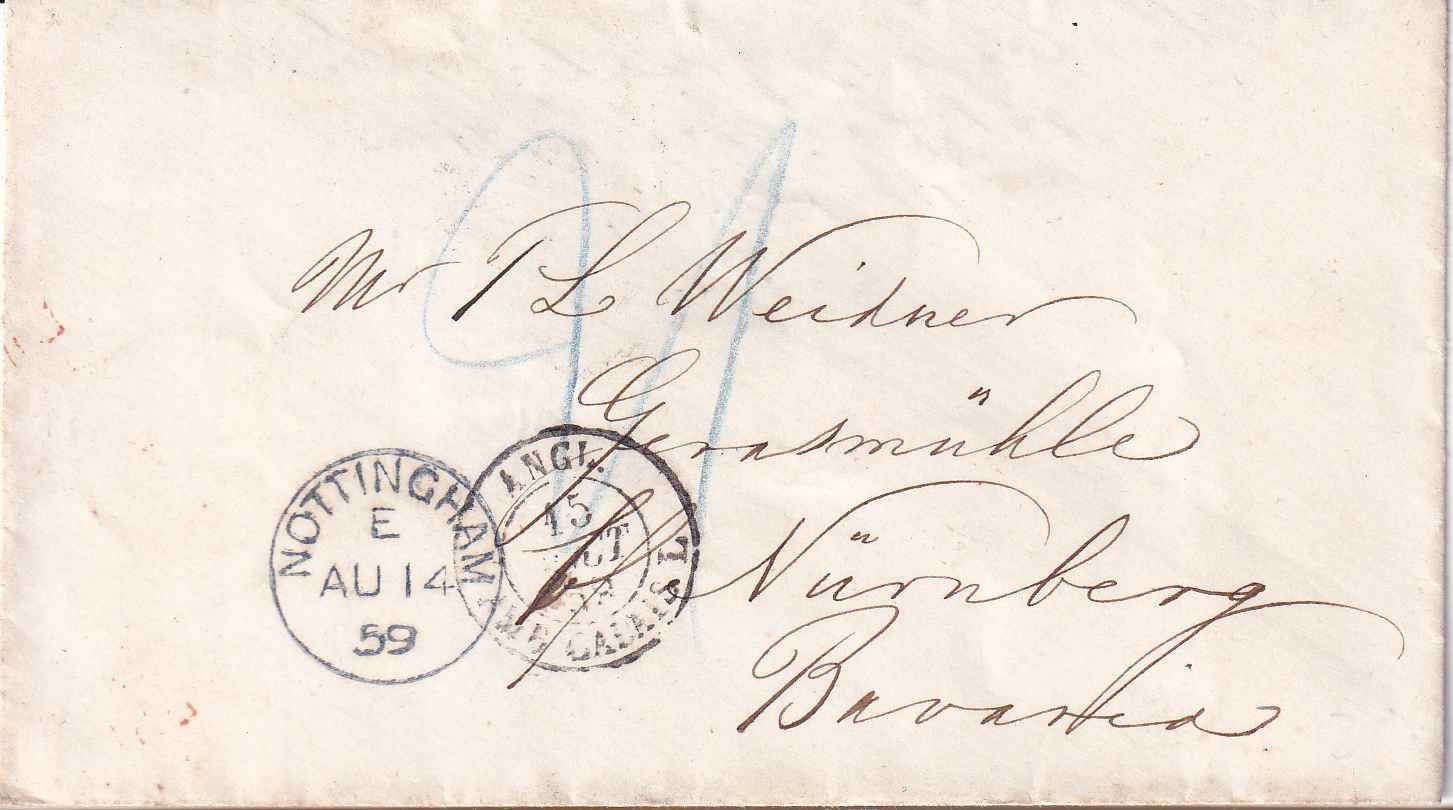 Mr T L Weidner
Gerasmühle
p/ Nürnberg
Bavaria
NOTTINGHAM
E
AU 14
59
ANGL.
15
AMB. CALAIS
21